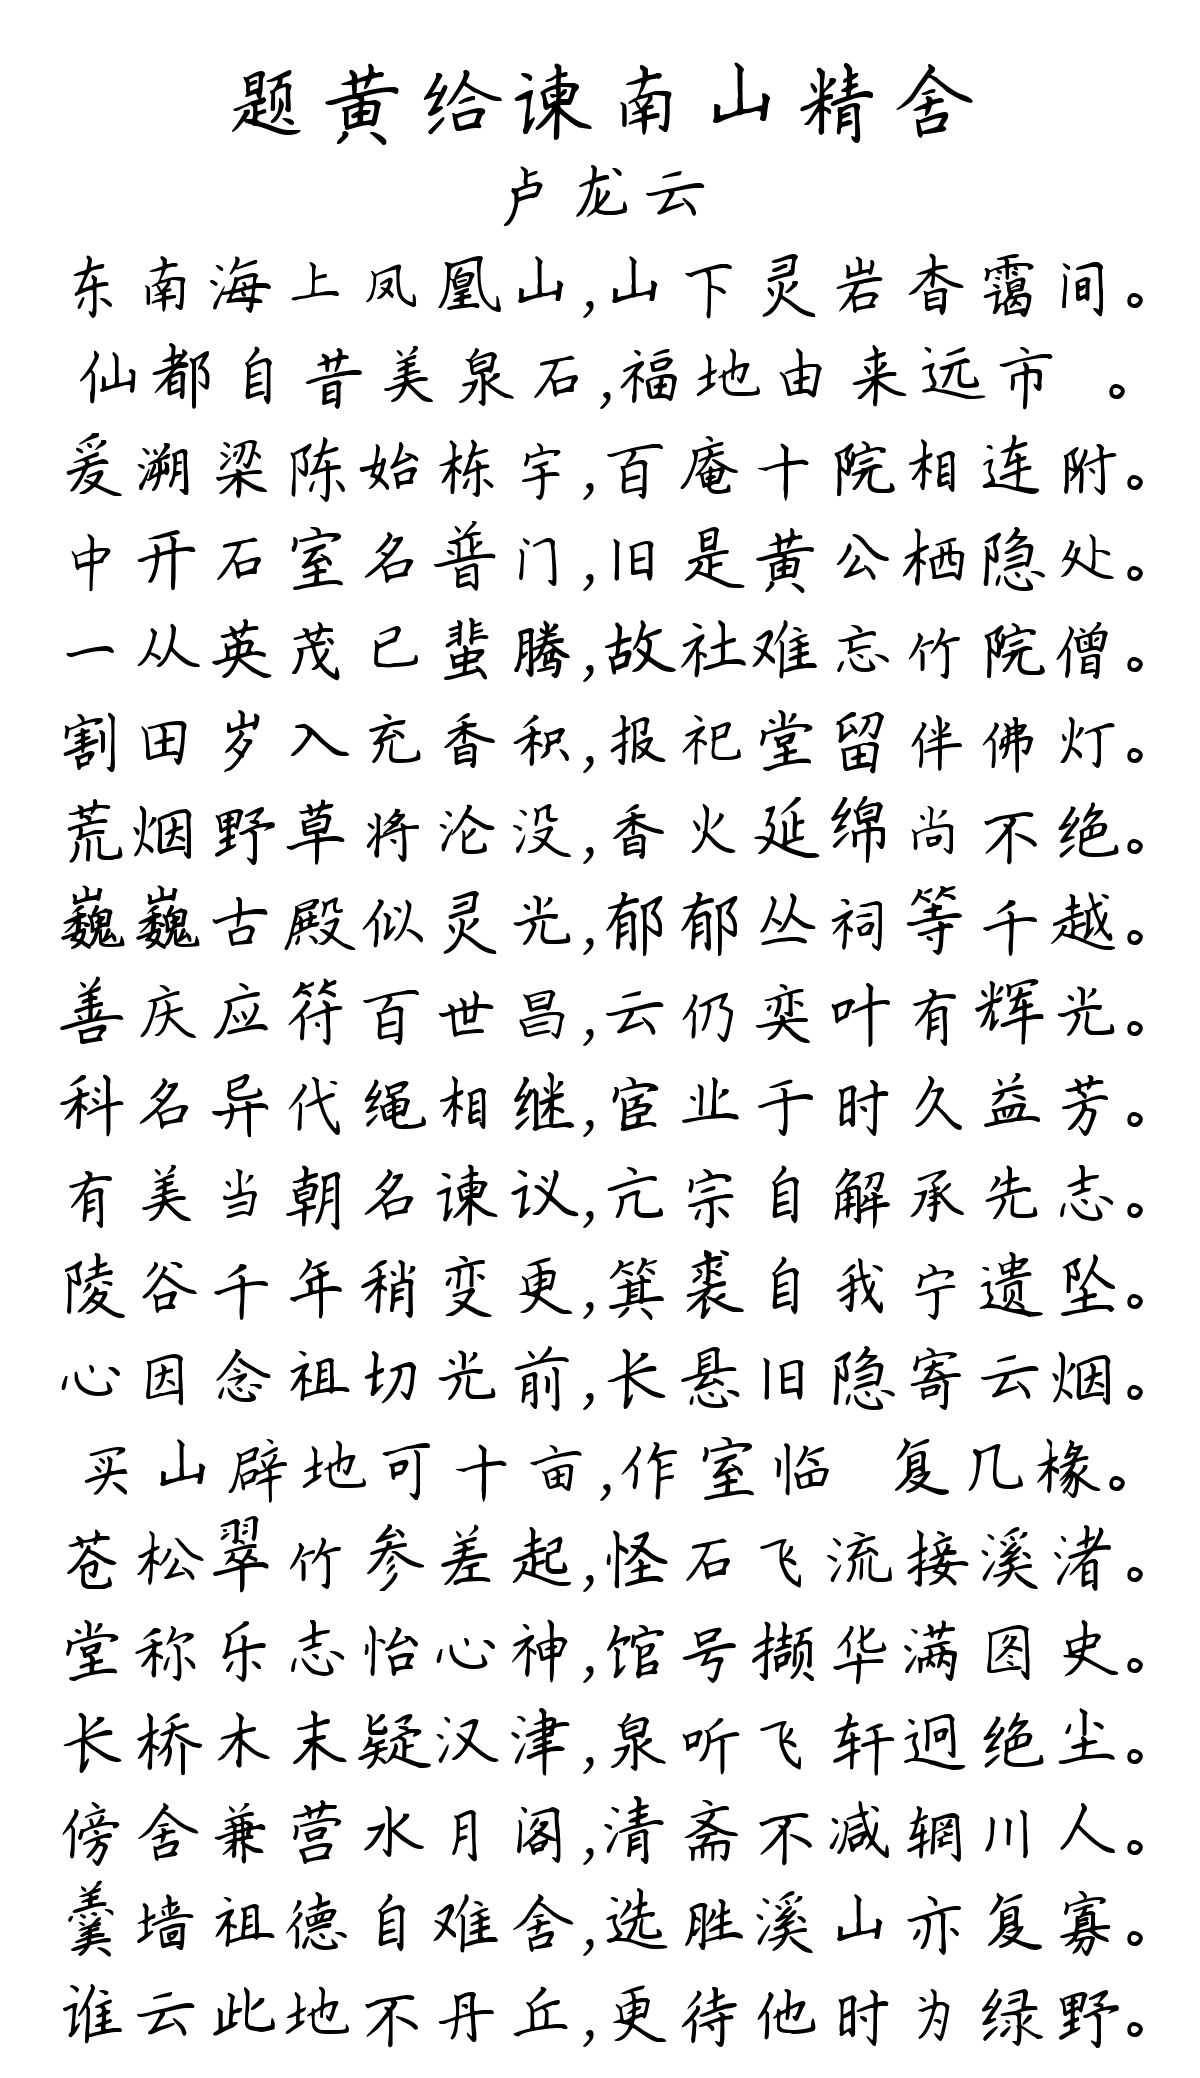 题黄给谏南山精舍
卢龙云
东南海上凤凰山,山下灵岩杳霭间。
仙都自昔美泉石,福地由来远市 。
爰溯梁陈始栋宇,百庵十院相连附。
中开石室名普门,旧是黄公栖隐处。
一从英茂已蜚腾,故社难忘竹院僧。
割田岁入充香积,报祀堂留伴佛灯。
荒烟野草将沦没,香火延绵尚不绝。
巍巍古殿似灵光,郁郁丛祠等千越。
善庆应符百世昌,云仍奕叶有辉光。
科名异代绳相继,宦业于时久益芳。
有美当朝名谏议,亢宗自解承先志。
陵谷千年稍变更,箕裘自我宁遗坠。
心因念祖切光前,长悬旧隐寄云烟。
买山辟地可十亩,作室临 复几椽。
苍松翠竹参差起,怪石飞流接溪渚。
堂称乐志怡心神,馆号撷华满图史。
长桥木末疑汉津,泉听飞轩迥绝尘。
傍舍兼营水月阁,清斋不减辋川人。
羹墙祖德自难舍,选胜溪山亦复寡。
谁云此地不丹丘,更待他时为绿野。